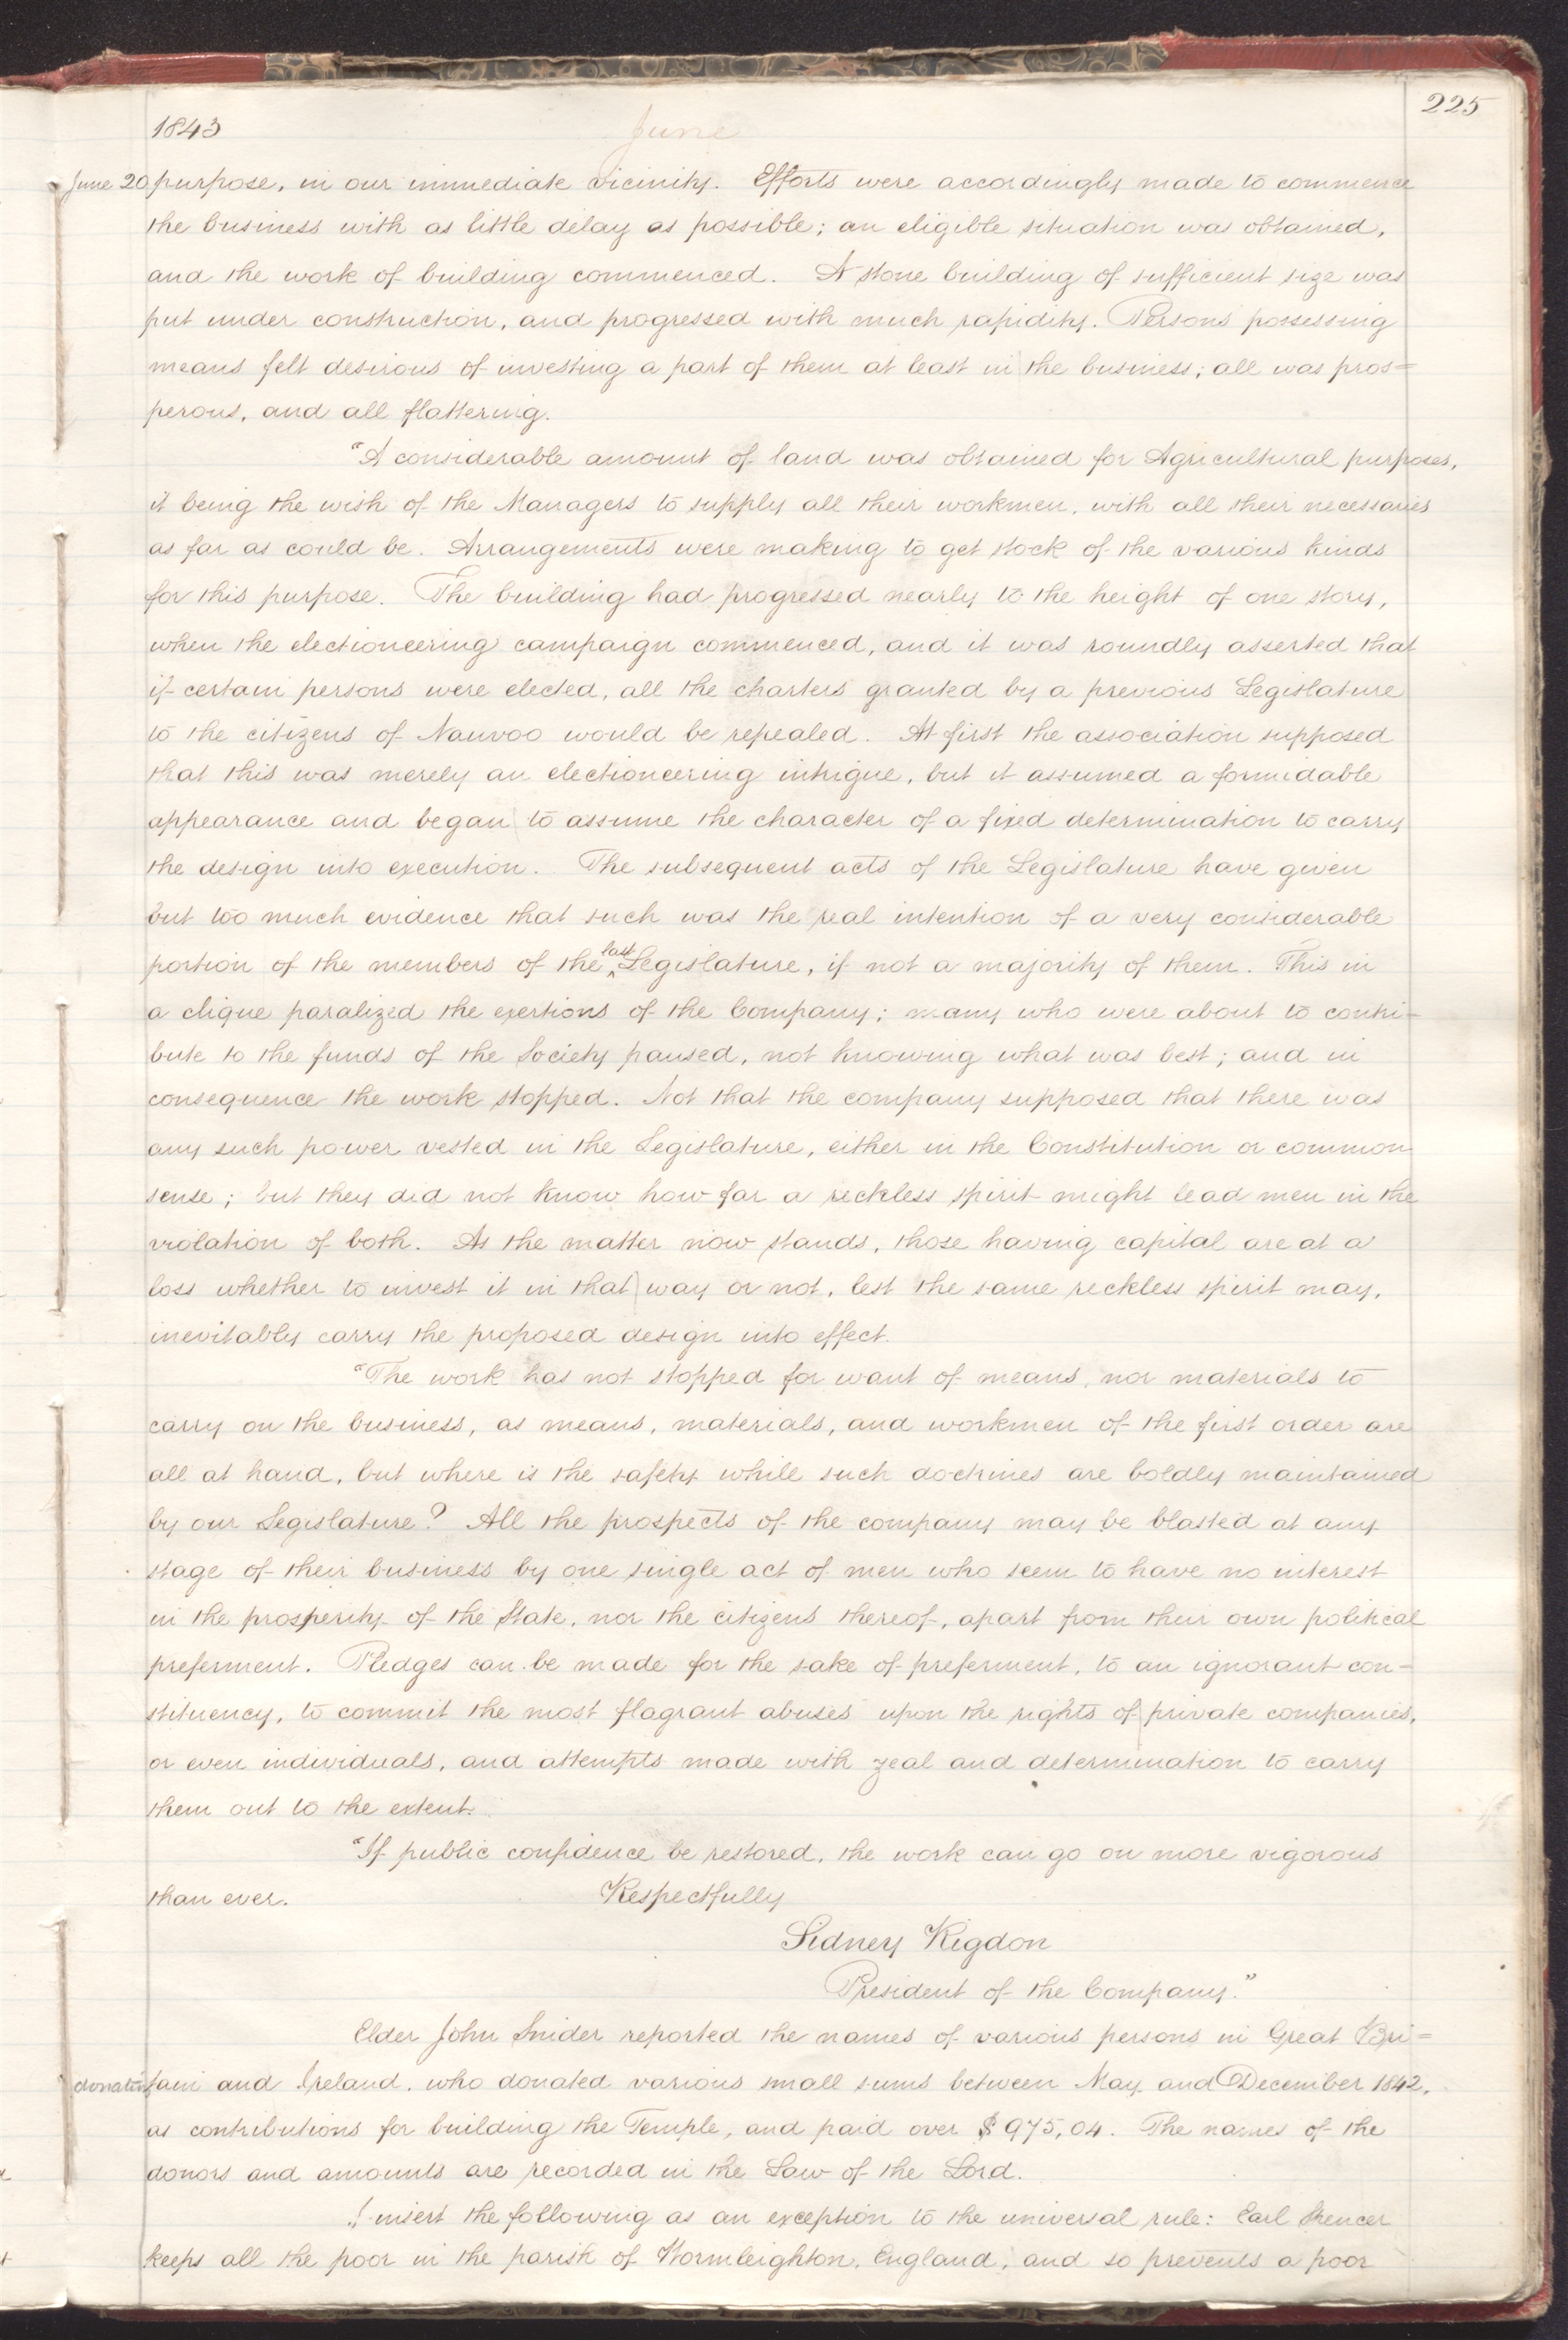 225
1843 June
June 20 purpose, in our immediate vicinity. Efforts were accordingly made to commence
the business with as little delay as possible; an eligible situation was obtained,
and the work of building commenced. A stone building of sufficient size was
put under construction, and progressed with much rapidity. Persons possessing
means felt desirous of investing a part of them at least in the business; all was pros=
perous, and all flattering.
"A considerable amount of land was obtained for Agricultural purposes,
it being the wish of the Managers to supply all their workmen, with all their necessaries
as far as could be. Arrangements were making to get stock of the various kinds
for this purpose. The building had progressed nearly to the height of one story,
when the electioneering campaign commenced, and it was roundly asserted that
if certain persons were elected, all the charters granted by a previous Legislature
to the citizens of Nauvoo would be repealed. At first the association supposed
that this was merely an electioneering intrigue, but it assumed a formidable
appearance and began to assume the character of a fixed determination to carry
the design into execution. The subsequent acts of the Legislature have given
but too much evidence that such was the real intention of a very considerable
portion of the members of the last Legislature, if not a majority of them. This in
a clique paralized the exertions of the Company; many who were about to contri-
bute to the funds of the Society paused, not knowing what was best; and in
consequence the work stopped. Not that the company supposed that there was
any such power vested in the Legislature, either in the Constitution or common
sense; but they did not know how far a reckless spirit might lead men in the
violation of both. As the matter now stands, those having capital are at a
loss whether to invest it in that way or not, lest the same reckless spirit may,
inevitably carry the proposed design into effect.
"The work has not stopped for want of means, nor materials to
carry on the business, as means, materials, and workmen of the first order are
all at hand, but where is the safety while such doctrines are boldly maintained
by our Legislature? All the prospects of the company may be blasted at any
stage of their business by one single act of men who seem to have no interest
in the prosperity of the State, nor the citizens thereof, apart from their own political
preferment. Pledges can be made for the sake of preferment, to an ignorant con-
stituency, to commit the most flagrant abuses upon the rights of private companies,
or even individuals, and attempts made with zeal and determination to carry
them out to the extent.
"If public confidence be restored, the work can go on more vigorous
than ever. Respectfully
Sidney Rigdon
President of the Company."
Elder John Snider reported the names of various persons in Great Bri=
donation tain and Ireland, who donated various small sums between May and December 1842,
as contributions for building the Temple, and paid over $975,04. The names of the
donors and amounts are recorded in the Law of the Lord.
I insert the following as an exception to the universal rule: Earl Spencer
keeps all the poor in the parish of Wormleighton, England, and so prevents a poor